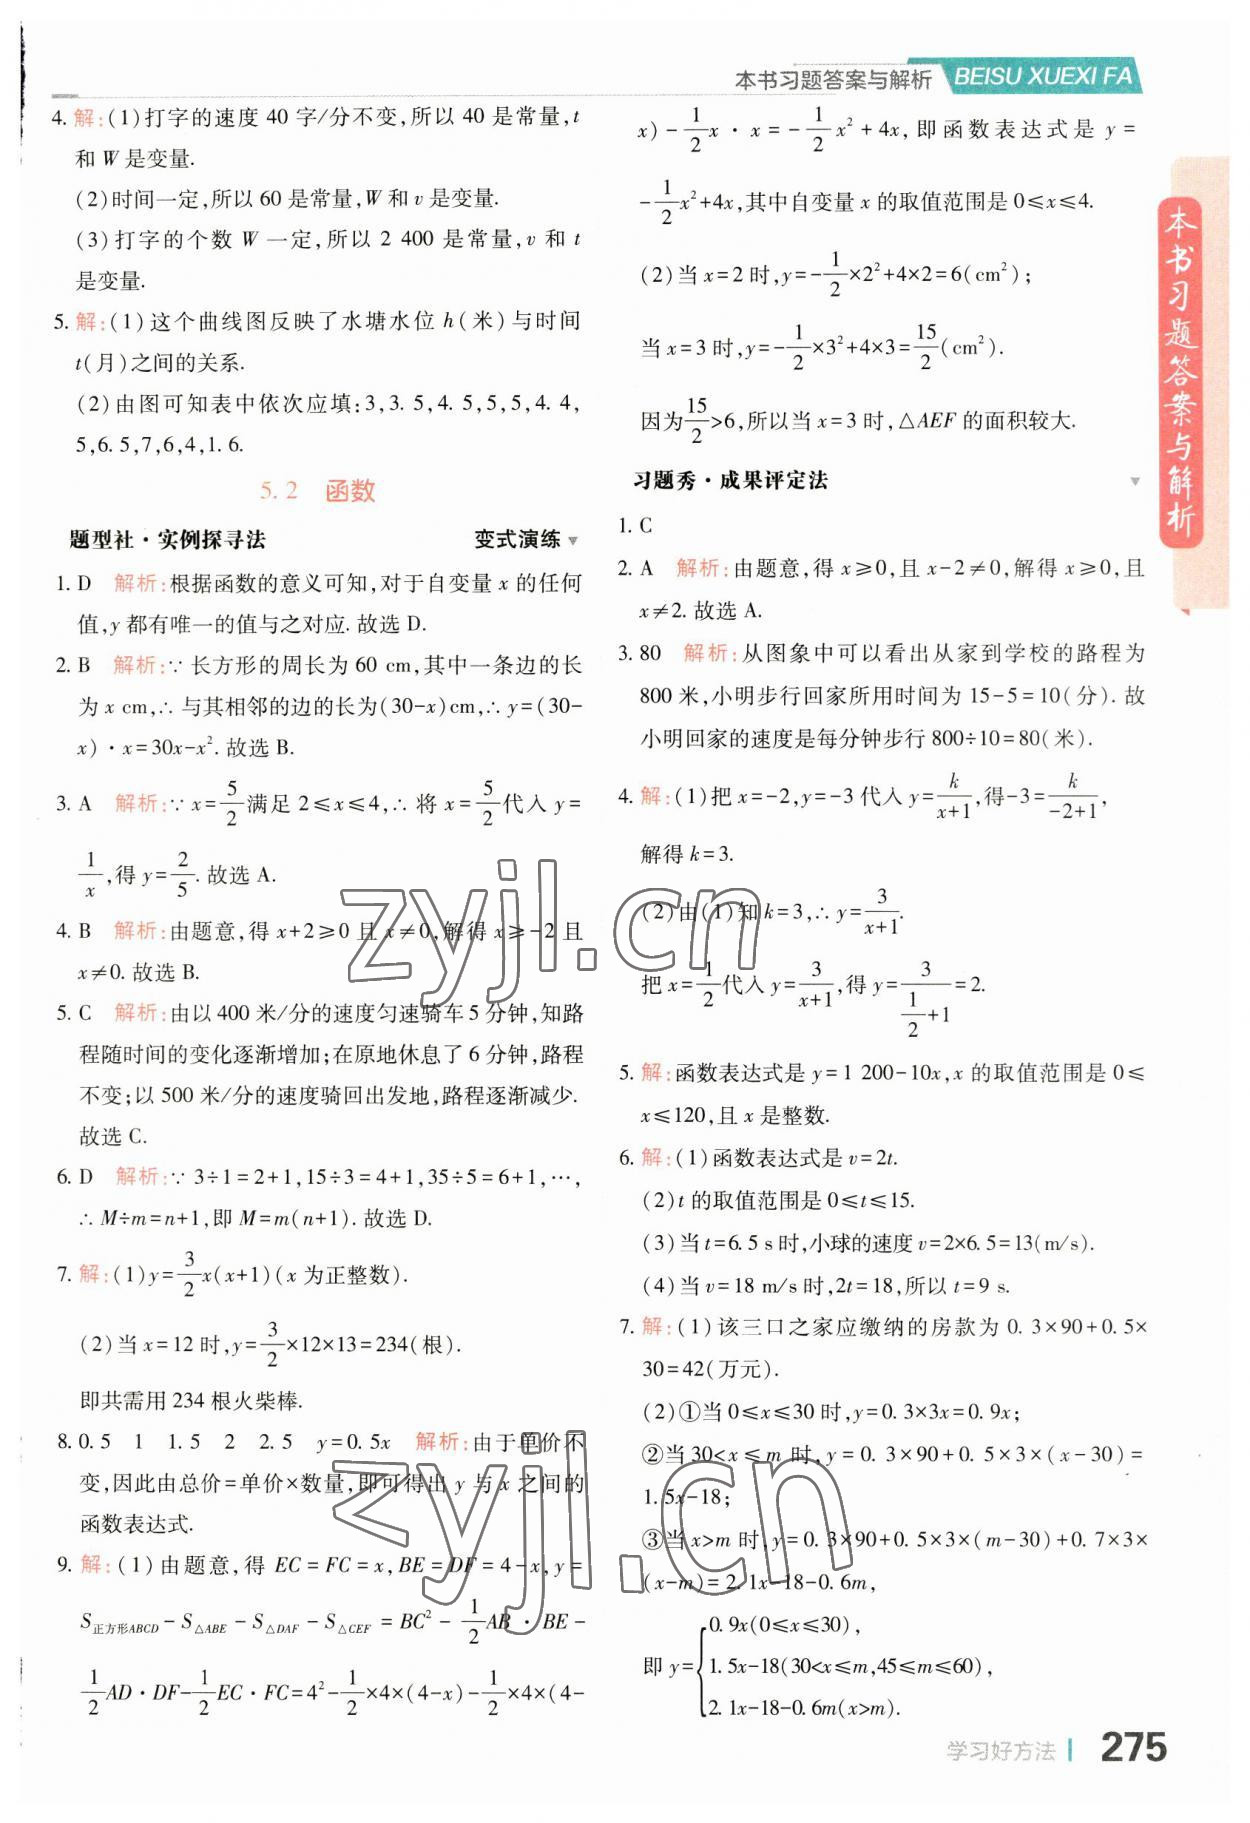 本书习题答案与解析 BEISU XUEXI FA
4. 解:(1)打字的速度 40 字/分不变,所以 40 是常量,t
和 W 是变量.
(2)时间一定,所以 60 是常量,W 和 v 是变量.
(3)打字的个数 W 一定,所以 2 400 是常量,v 和 t
是变量.
5. 解:(1)这个曲线图反映了水塘水位 h(米)与时间
t(月)之间的关系.
(2)由图可知表中依次应填:3,3.5,4.5,5,5,4.4,
5,6.5,7,6,4,1.6.
5.2 函数
题型社·实例探寻法 变式演练
1. D 解析:根据函数的意义可知,对于自变量 x 的任何
值,y 都有唯一的值与之对应. 故选 D.
2. B 解析:∵ 长方形的周长为 60 cm,其中一条边的长
为 x cm,∴ 与其相邻的边的长为(30-x)cm,∴ y=(30-
x)·x=30x-x². 故选 B.
3. A 解析:∵ x=5/2满足 2≤x≤4,∴ 将 x=5/2代入 y=
1/x,得 y=2/5. 故选 A.
4. B 解析:由题意,得 x+2≥0 且 x≠0,解得 x≥-2 且
x≠0. 故选 B.
5. C 解析:由以 400 米/分的速度匀速骑车 5 分钟,知路
程随时间的变化逐渐增加;在原地休息了 6 分钟,路程
不变;以 500 米/分的速度骑回出发地,路程逐渐减少.
故选 C.
6. D 解析:∵ 3÷1=2+1,15÷3=4+1,35÷5=6+1,…,
∴ M÷m=n+1,即 M=m(n+1). 故选 D.
7. 解:(1)y=3/2x(x+1)(x 为正整数).
(2)当 x=12 时,y=3/2×12×13=234(根).
即共需用 234 根火柴棒.
8. 0.5 1 1.5 2 2.5 y=0.5x 解析:由于单价不
变,因此由总价=单价×数量,即可得出 y 与 x 之间的
函数表达式.
9. 解:(1)由题意,得 EC=FC=x,BE=DF=4-x,y=
S正方形ABCD-S△ABE-S△DAF-S△CEF=BC²-1/2AB·BE-
1/2AD·DF-1/2EC·FC=4²-1/2×4×(4-x)-1/2×4×(4-
x)-1/2x·x=-1/2x²+4x,即函数表达式是 y=
-1/2x²+4x,其中自变量 x 的取值范围是 0≤x≤4.
(2)当 x=2 时,y=-1/2×2²+4×2=6(cm²);
当 x=3 时,y=-1/2×3²+4×3=15/2(cm²).
因为15/2>6,所以当 x=3 时,△AEF 的面积较大.
习题秀·成果评定法
1. C
2. A 解析:由题意,得 x≥0,且 x-2≠0,解得 x≥0,且
x≠2. 故选 A.
3. 80 解析:从图象中可以看出从家到学校的路程为
800 米,小明步行回家所用时间为 15-5=10(分). 故
小明回家的速度是每分钟步行 800÷10=80(米).
4. 解:(1)把 x=-2,y=-3 代入 y=k/(x+1),得-3=k/(-2+1),
解得 k=3.
(2)由(1)知 k=3,∴ y=3/(x+1).
把 x=1/2代入 y=3/(x+1),得 y=3/(1/2+1)=2.
5. 解:函数表达式是 y=1 200-10x,x 的取值范围是 0≤
x≤120,且 x 是整数.
6. 解:(1)函数表达式是 v=2t.
(2)t 的取值范围是 0≤t≤15.
(3)当 t=6.5 s 时,小球的速度 v=2×6.5=13(m/s).
(4)当 v=18 m/s 时,2t=18,所以 t=9 s.
7. 解:(1)该三口之家应缴纳的房款为 0.3×90+0.5×
30=42(万元).
(2)①当 0≤x≤30 时,y=0.3×3x=0.9x;
②当 30<x≤m 时,y=0.3×90+0.5×3×(x-30)=
1.5x-18;
③当 x>m 时,y=0.3×90+0.5×3×(m-30)+0.7×3×
(x-m)=2.1x-18-0.6m,
即 y={0.9x(0≤x≤30),
1.5x-18(30<x≤m,45≤m≤60),
2.1x-18-0.6m(x>m).
本书习题答案与解析
zyjl.cn
zyjl.cn
学习好方法 275